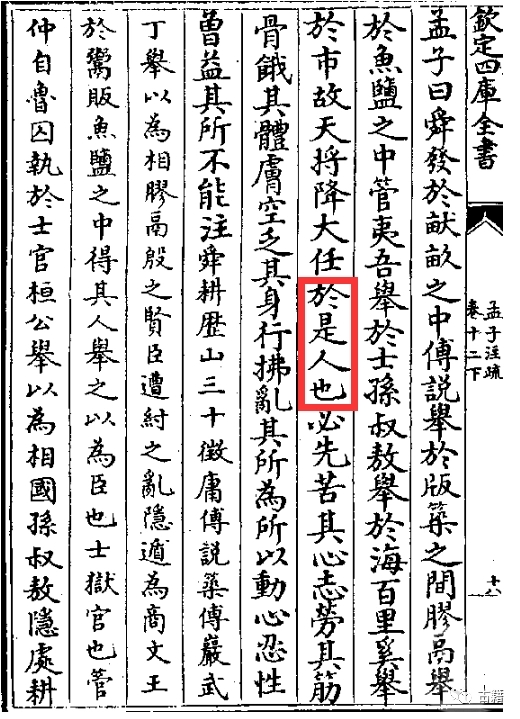 欽定四庫全書
孟子注疏
卷十二下
孟子曰舜發於畎畝之中傅説舉於版築之間膠鬲舉
於魚鹽之中管夷吾舉於士孫叔敖舉於海百里奚舉
於市故天將降大任於是人也必先苦其心志勞其筋
骨餓其體膚空乏其身行拂亂其所為所以動心忍性
曾益其所不能注舜耕歴山三十徵庸傅説築傅巖武
丁舉以為相膠鬲殷之賢臣遭紂之亂隱遁為商文王
於鬻販魚鹽之中得其人舉之以為臣也士獄官也管
仲自魯囚執於士官桓公舉以為相國孫叔敖隱處耕
古籍